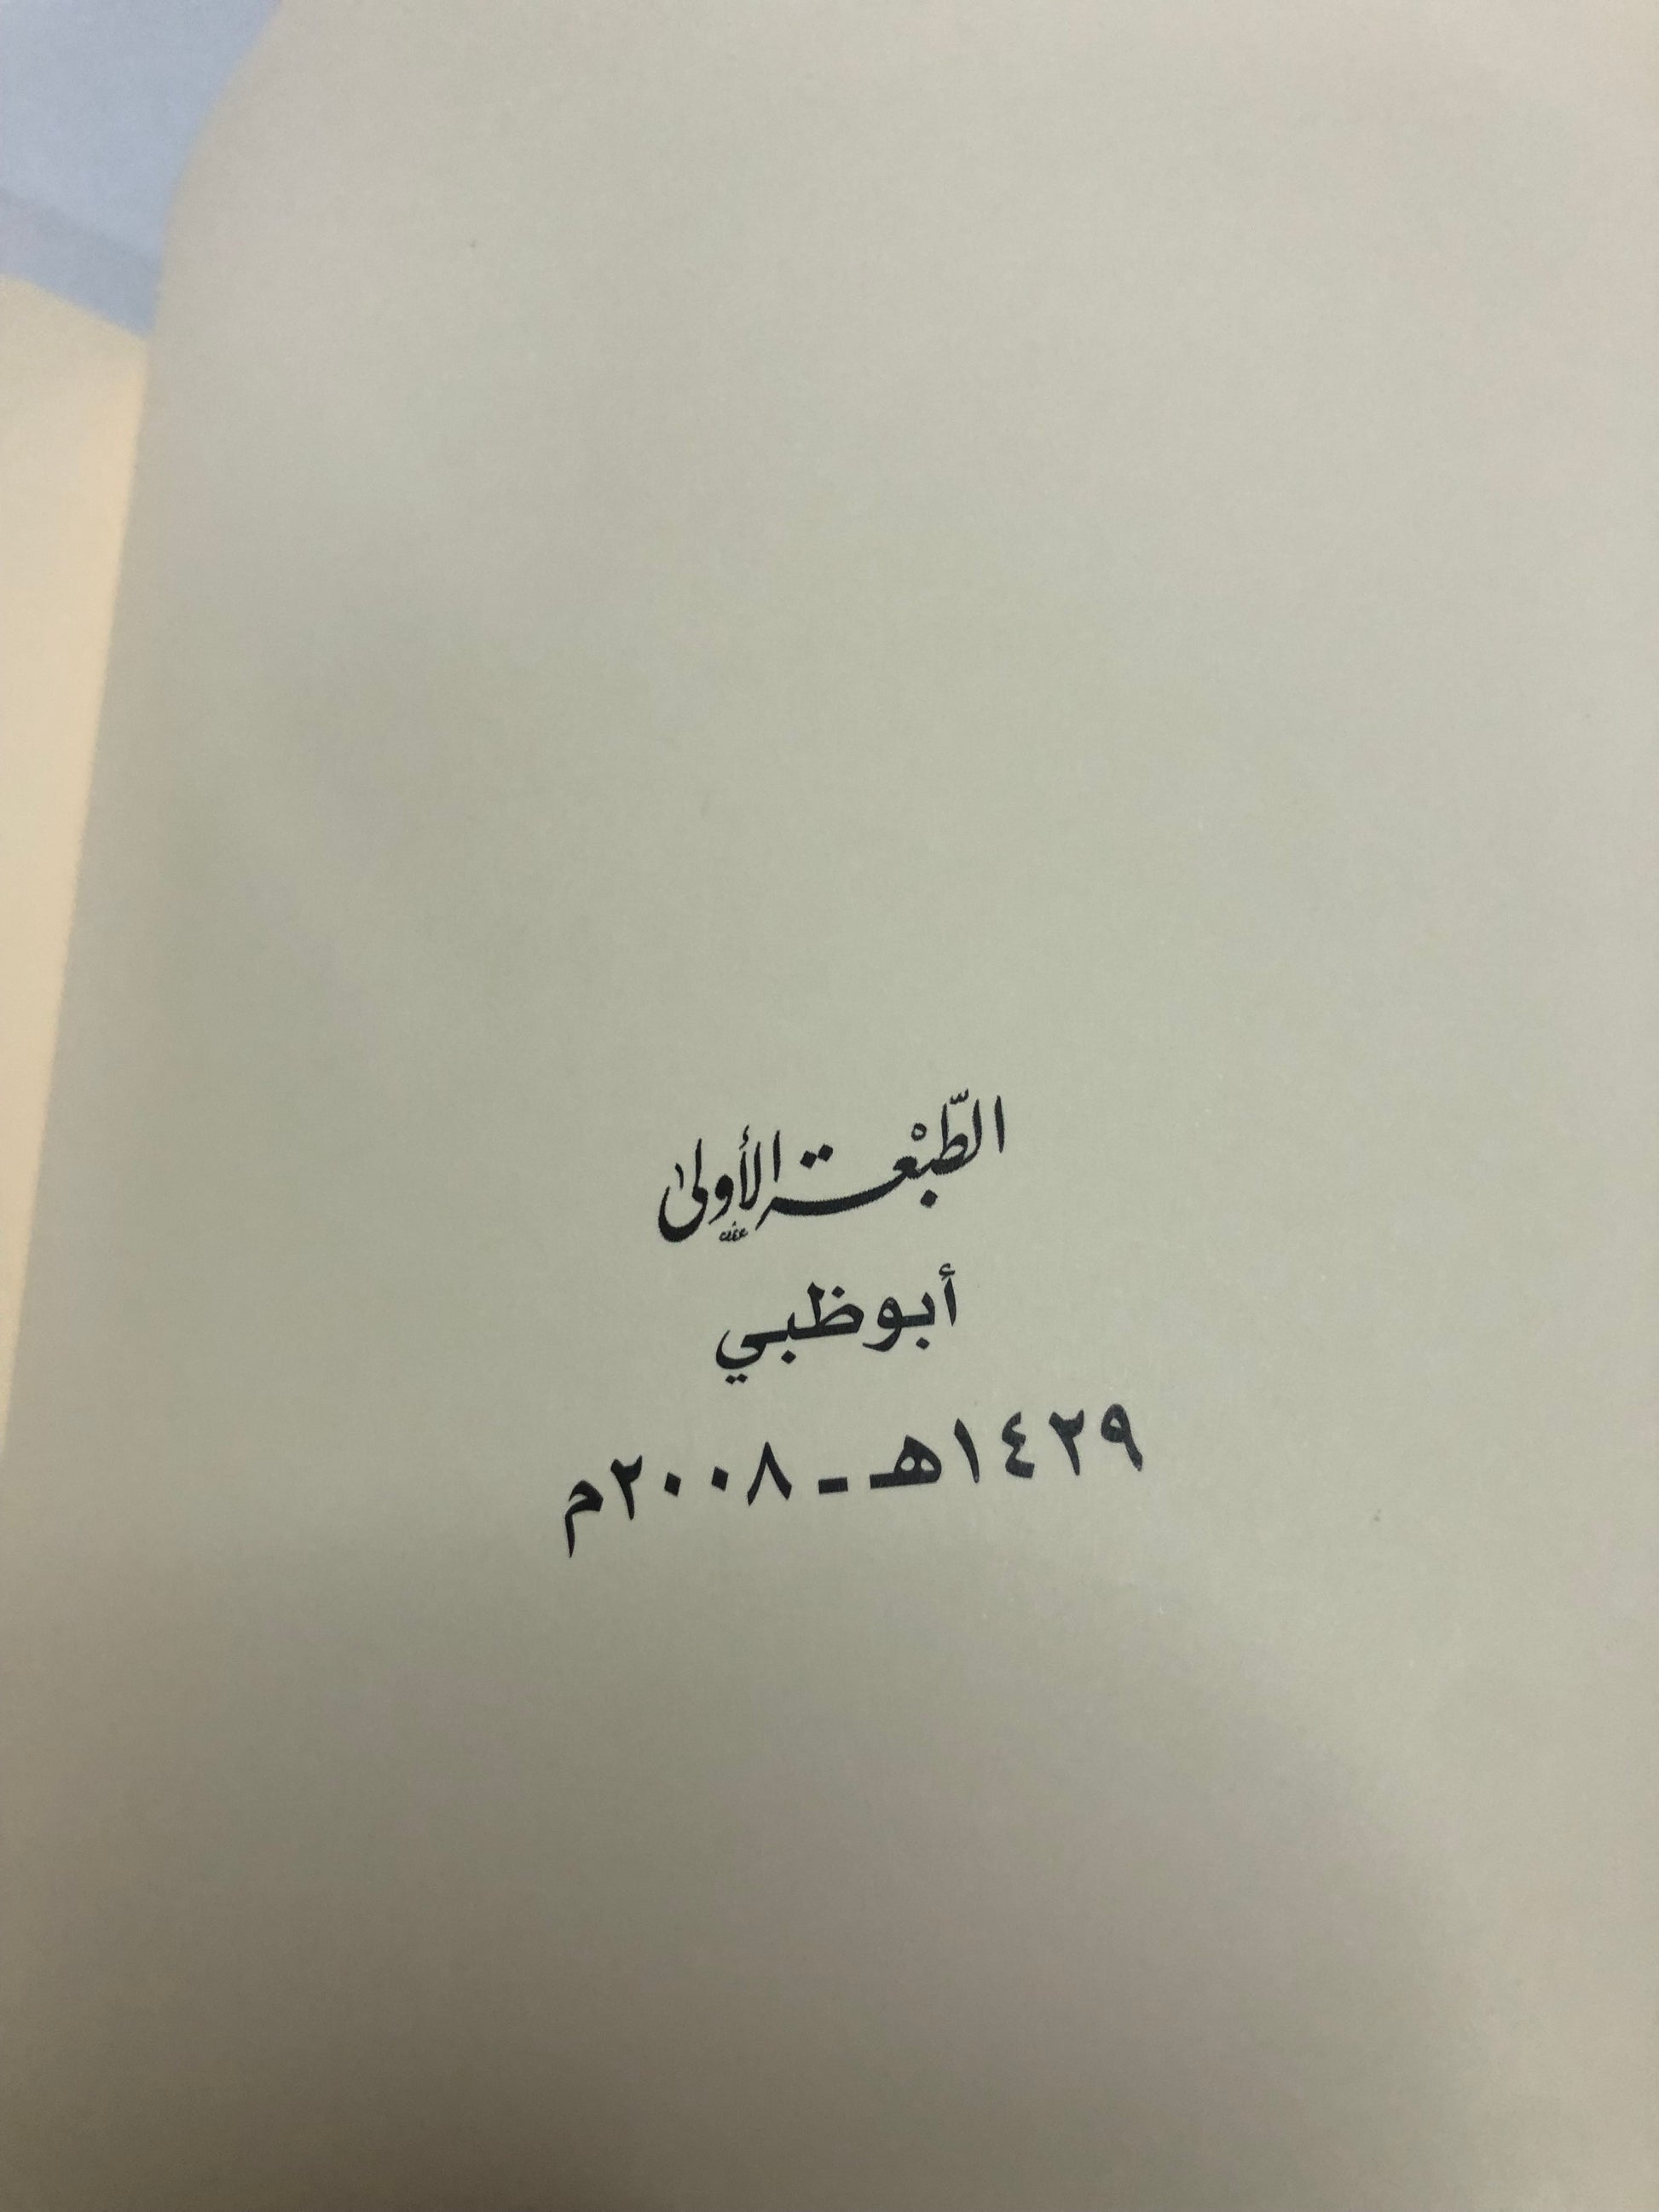 الطّبْعة الأولى
أبوظبي
١٤٢٩هـ - ٢٠٠٨م